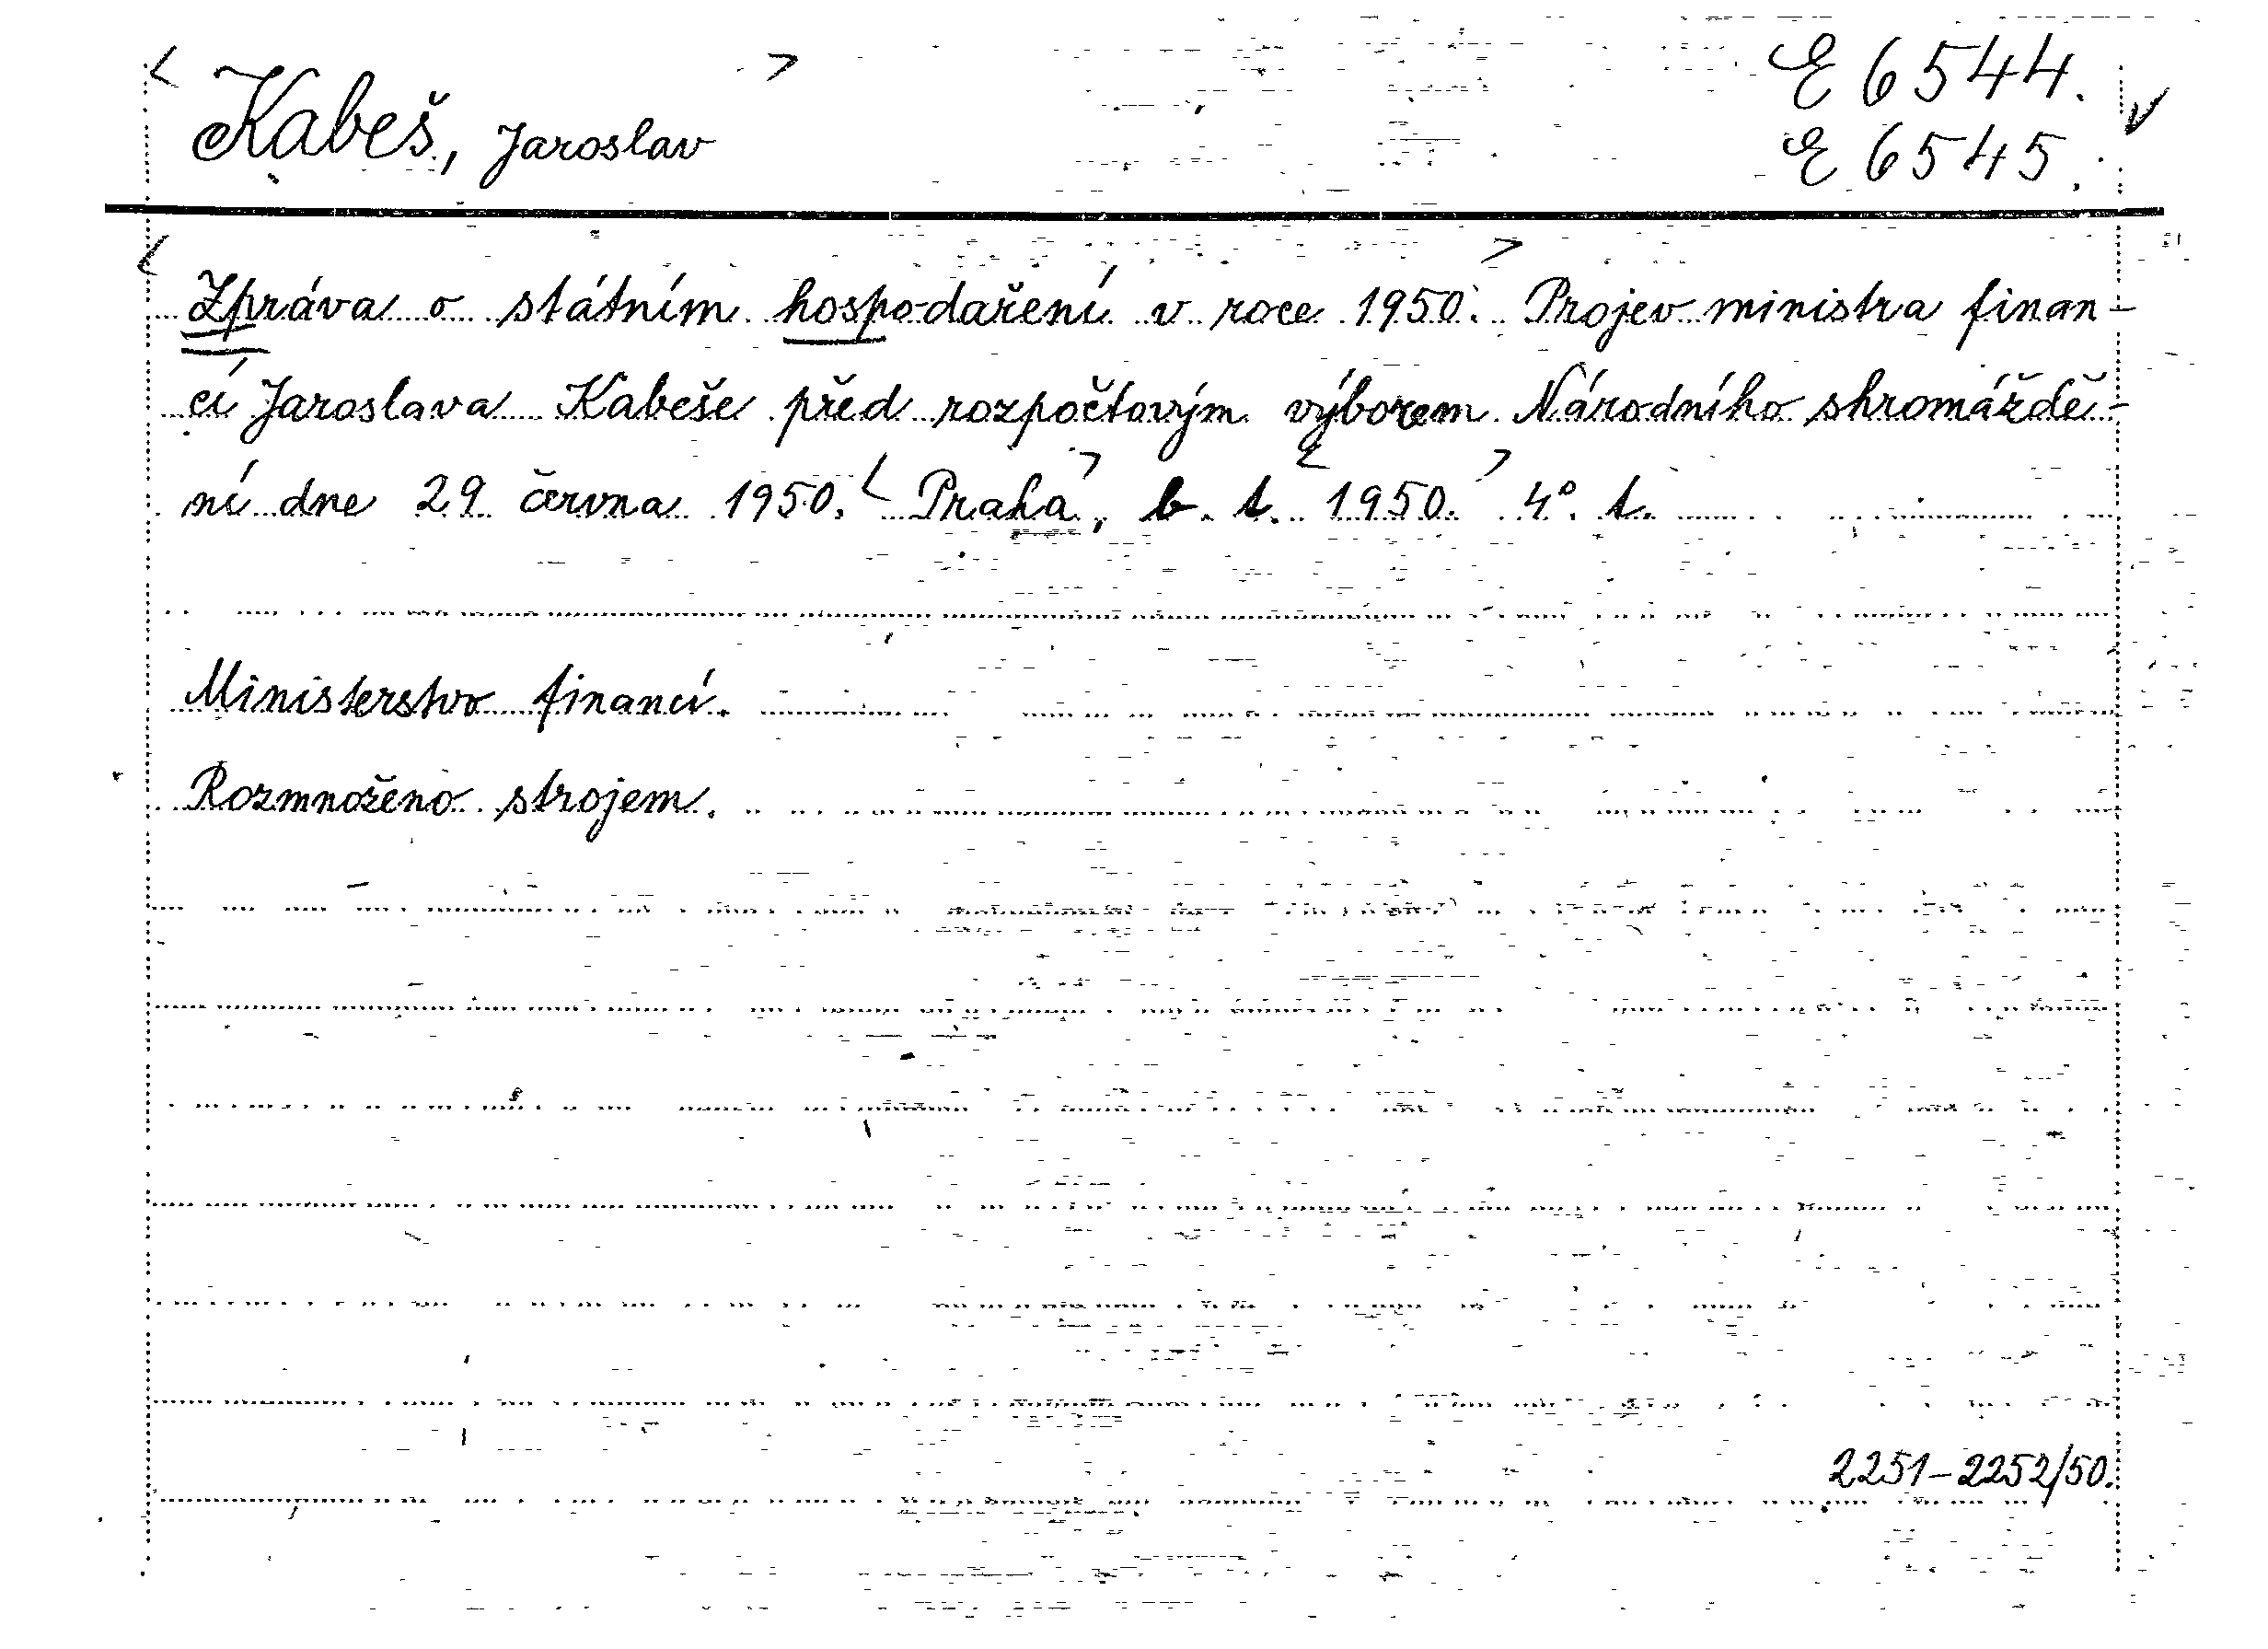 Kabeš, Jaroslav
E 6544.
E 6545.
Zpráva o státním hospodaření v roce 1950. Projev ministra finan-
cí Jaroslava Kabeše před rozpočtovým výborem Národního shromáždě-
ní dne 29 června 1950. Praha, b. t. 1950. 4°. t.
Ministerstvo financí.
Rozmnoženo strojem.
2251-2252/50.